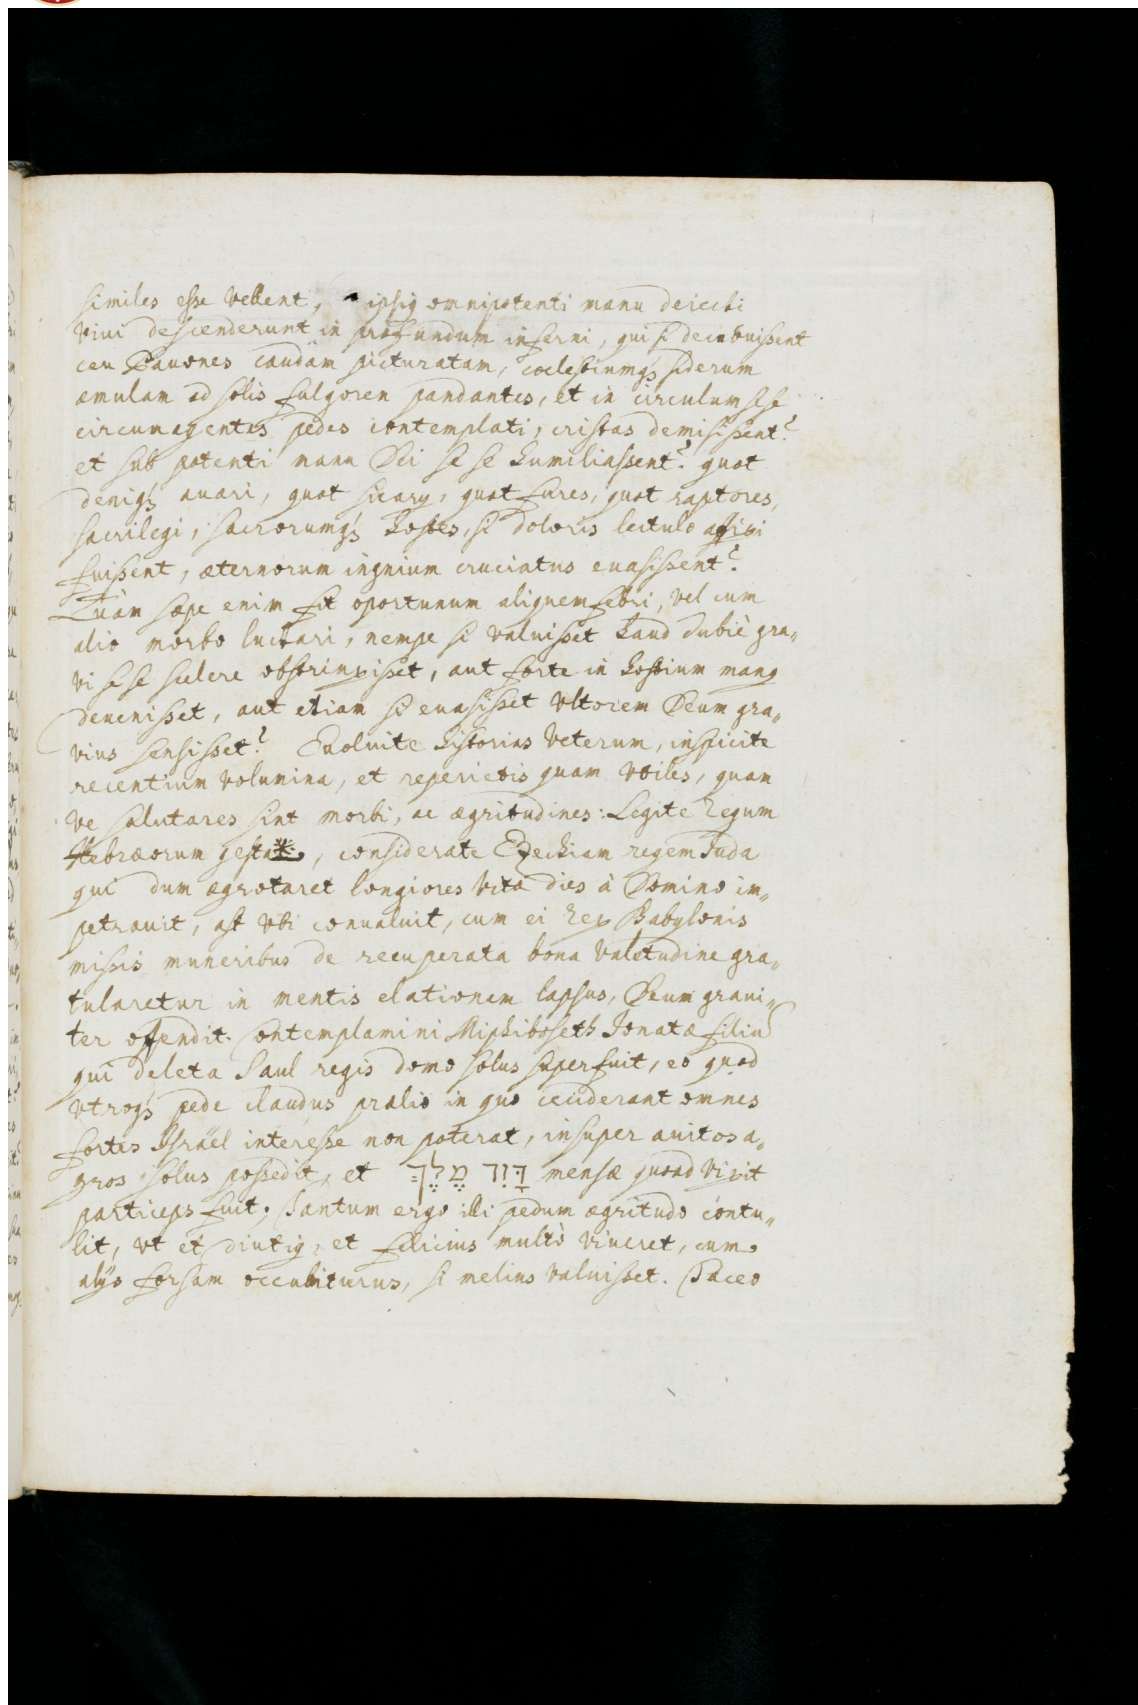 similes esse vellent, ipsiꝰ omnipotenti manu deiecti
vivi descenderunt in profundum inferni, qui si decubuissent
ceu Pavones caudam picturatam, coelestiumq́ʒ siderum
æmulam ad solis fulgorem pandantes, et in circulum sese
circumagentes pedes contemplati, cristas demisissent?
et sub potenti manu Dei se se humiliassent? quot
deniq́ʒ auari, quot sicarij, quot fures, quot raptores,
sacrilegi, sacrorumq́ʒ hostes, si doloris lectulo affixi
fuissent, æternorum ingnium cruciatus euasissent?
Quàm sæpe enim fit oportunum aliquem febri, vel cum
alio morbo luctari, nempe si valuisset haud dubiè gra„
vi se se scelere obstrinxisset, aut forte in hostium manꝰ
deuenisset, aut etiam si euasisset vltorem Deum gra„
vius sensisset? Euoluite historias veterum, inspicite
recentium volumina, et reperietis quam vtiles, quam
ve salutares sint morbi, ac ægritudines: Legite Regum
Hebræorum gesta*, considerate Ezechiam regem Juda
qui dum ægrotaret longiores vita dies à Domino im„
petrauit, ast vbi conualuit, cum ei Rex Babylonis
missis muneribus de recuperata bona valetudine gra„
tularetur in mentis elationem lapsus, Deum graui„
ter offendit. Contemplamini Miphiboseth Jonatæ filiū
qui deleta Saul regis domo solus superfuit, eo quod
vtroq́ʒ pede claudus prælio in quo ceciderant omnes
fortes Israël interesse non poterat, insuper auitos a„
gros solus possedit, et דָּוִד מֶלֶךְ mensæ quoad vixit
particeps fuit; Tantum ergo illi pedum ægritudo contu„
lit, vt et diutiꝰ, et felicius multò viueret, cum
alijs forsam occubiturus, si melius valuisset. Taceo